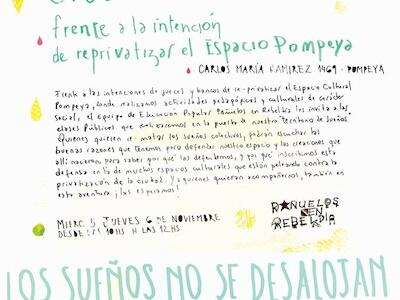 frente a la intención
de reprivatizar el Espacio Pompeya
CARLOS MARÍA RAMIREZ 1469 - POMPEYA
Frente a las intenciones de jueces y bancos de re-privatizar el Espacio Cultural
Pompeya, donde realizamos actividades pedagógicas y culturales de carácter
social, el equipo de Educación Popular Pañuelos en Rebeldía los invita a las
clases Públicas que realizaremos en la puerta de nuestro Territorio de Sueños.
Quienes quieren matar los sueños colectivos, podrán escuchar las
buenas razones que tenemos para defender nuestro espacio y las creaciones que
allí nacieron, para saber por qué las defendemos, y por qué inscribimos esta
defensa en la de muchos espacios culturales que están peleando contra la
privatización de la ciudad. Y a quienes quieran acompañarnos, también en
esta aventura ¡los esperamos!
MIERC 5 JUEVES 6 DE NOVIEMBRE
DESDE LAS 10HS A LAS 12HS
PAÑUELOS
EN
REBELDÍA
LOS SUEÑOS NO SE DESALOJAN